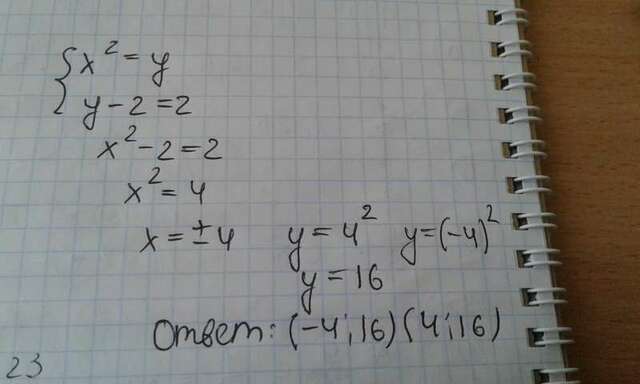 { x² = y
y - 2 = 2
x² - 2 = 2
x² = 4
x = ± 4 y = 4² y = (-4)²
y = 16
Ответ: (-4; 16) (4; 16)
23